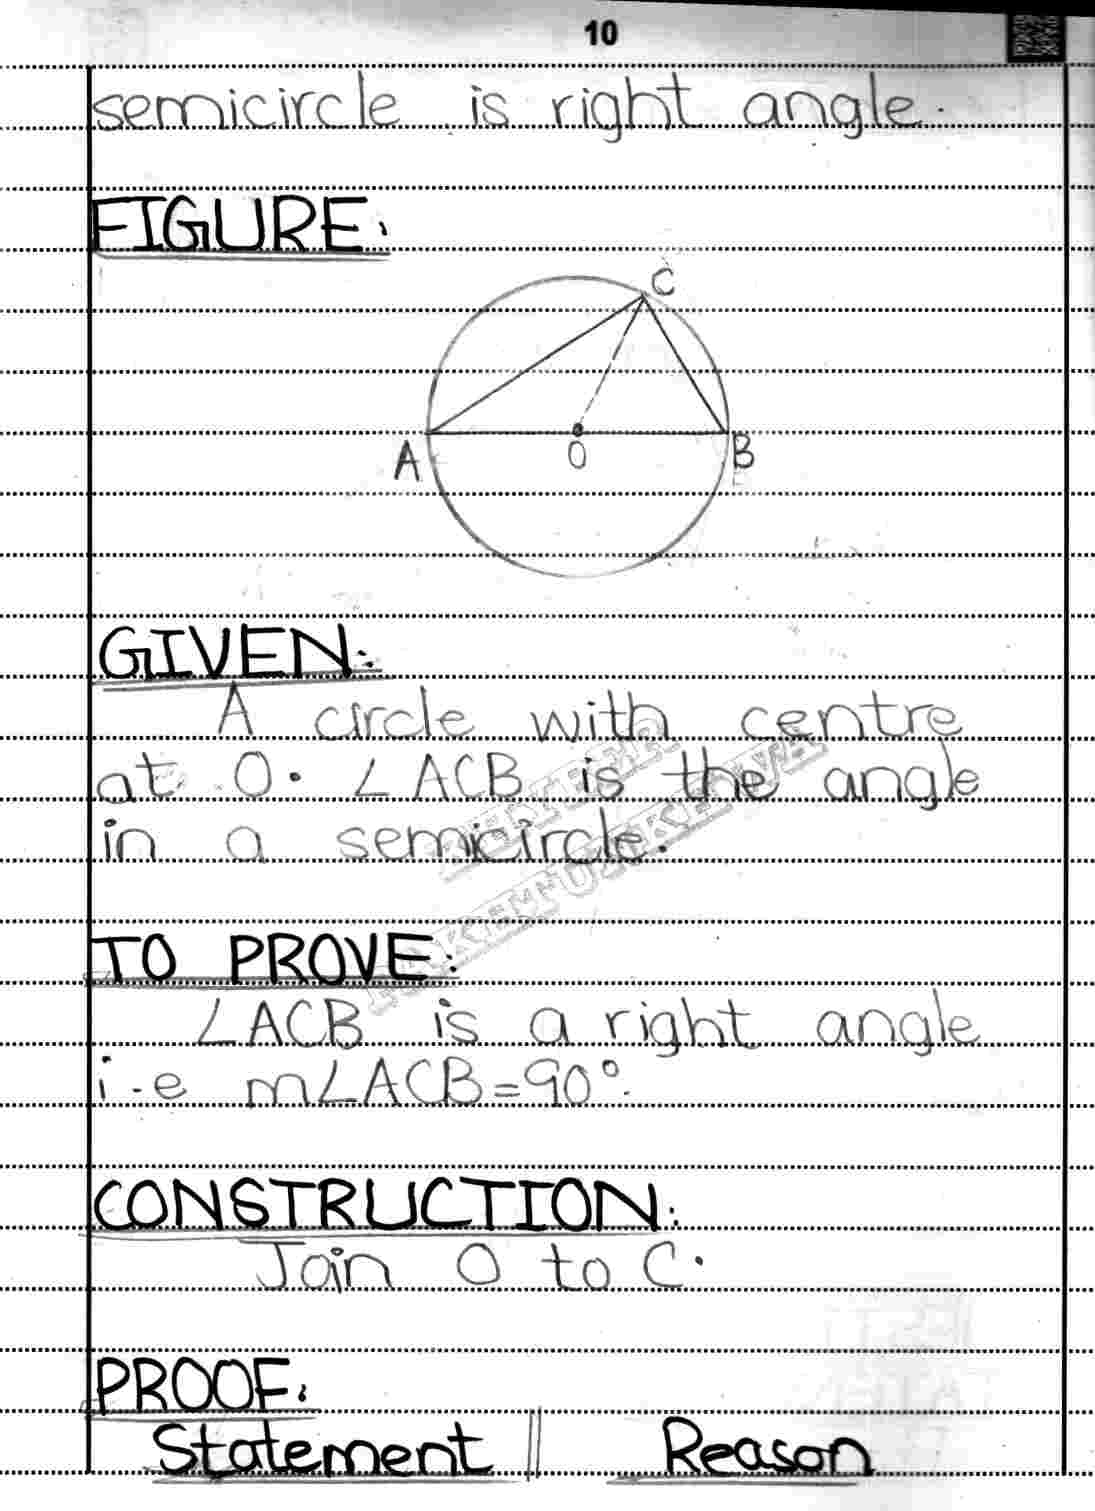 10
semicircle is right angle.
FIGURE:
C
A
O
B
GIVEN:
A circle with centre
at O. ∠ACB is the angle
in a semicircle.
TO PROVE:
∠ACB is a right angle
i.e m∠ACB=90°.
CONSTRUCTION:
Join O to C.
PROOF:
Statement || Reason